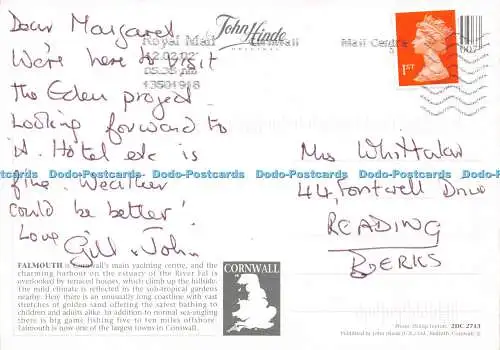 Dear Margaret
We're here to visit
the Eden project.
Looking forward to
it. Hotel etc is
fine. Weather
could be better!
Love
Gill & John
John Hinde
ORIGINAL
Royal Mail Cornwall Mail Centre
12.02.02
05.38 pm
13501918
1ST
Mrs Whittaker
44, Fontwell Drive
READING
BERKS
Dodo-Postcards Dodo-Postcards Dodo-Postcards Dodo-Postcards Dodo-Postcards
FALMOUTH is Cornwall's main yachting centre, and the
charming harbour on the estuary of the River Fal is
overlooked by terraced houses, which climb up the hillside.
The mild climate is reflected in the sub-tropical gardens
nearby. Here there is an unusually long coastline with vast
stretches of golden sand offering the safest bathing to
children and adults alike. In addition to normal sea-angling
there is big game fishing five to ten miles offshore.
Falmouth is now one of the largest towns in Cornwall.
CORNWALL
2DC 2713
Published by John Hinde